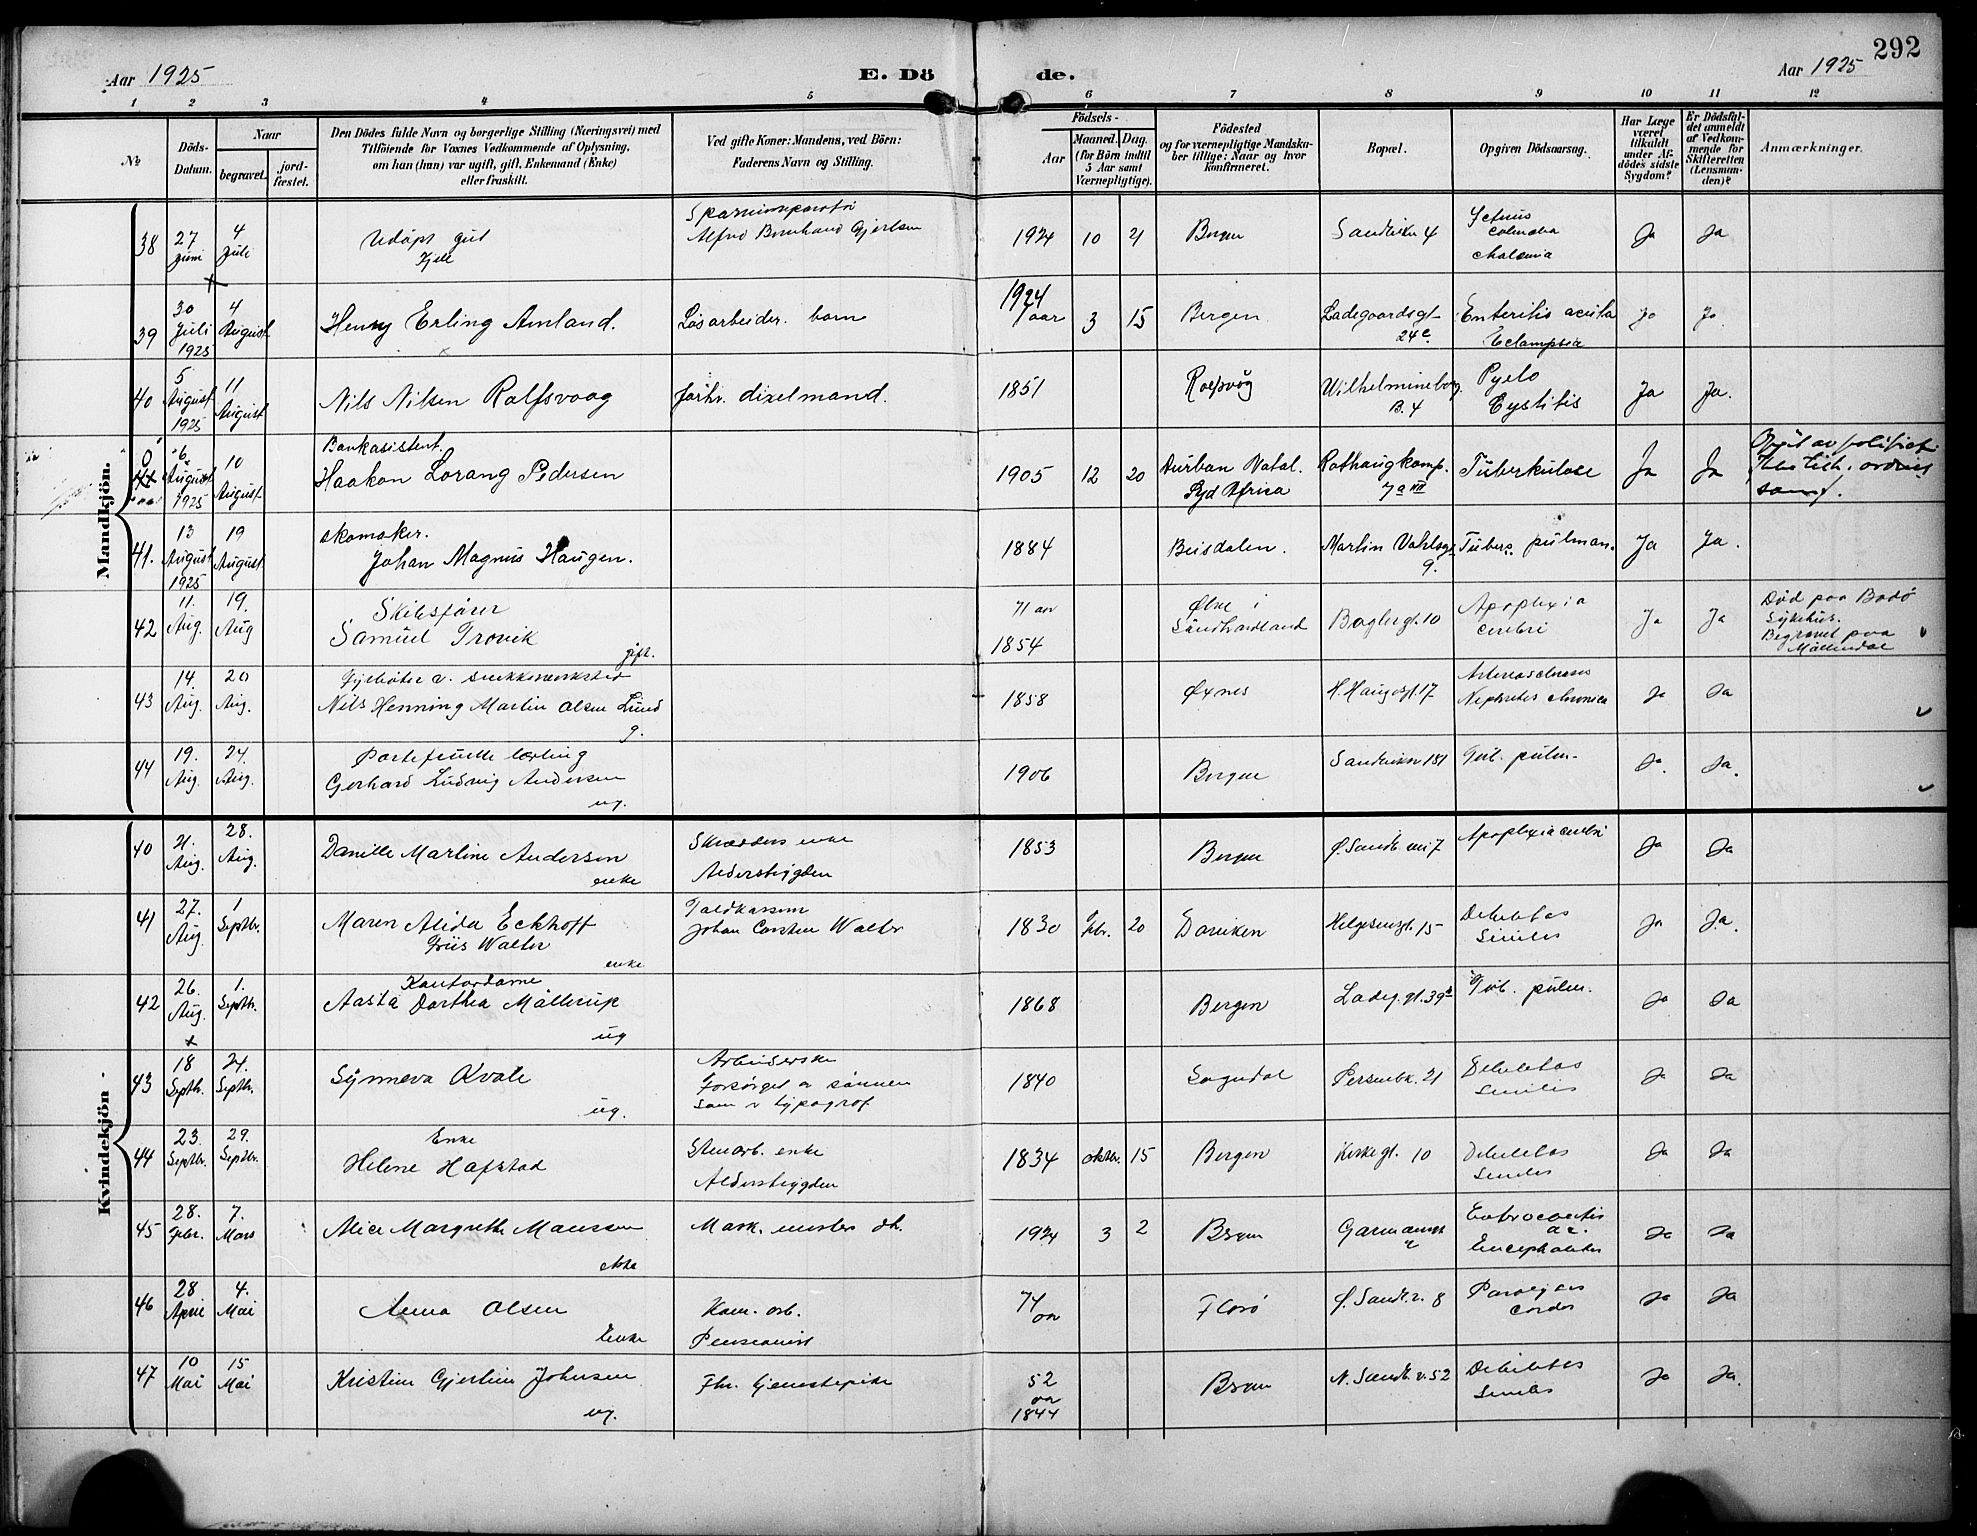 292
Aar 1925
E. Dö
de.
Aar 1925
1 2 3 4 5 6 7 8 9 10 11 12
No
Döds-
Datum.
Naar
begravet.
jord-
fæstet.
Den Dödes fulde Navn og borgerlige Stilling (Næringsvei) med
Tilföiende for Voxnes Vedkommende af Oplysning,
om han (hun) var ugift, gift, Enkemand (Enke)
eller fraskilt.
Ved gifte Koner: Mandens, ved Börn:
Faderens Navn og Stilling.
Födsels-
Aar
Maaned. Dag.
(for Börn indtil
5 Aar samt
Værnepligtige).
Födested
og for værnepligtige Mandska-
ber tillige: Naar og hvor
konfirmeret.
Bopæl.
Opgiven Dödsaarsag.
Har Læge
været
tilkaldt
under Af-
dödes sidste
Sygdom?
Er Dödsfal-
det anmeldt
af Vedkom-
mende for
Skifteretten
(Lensman-
den)?
Anmærkninger.
Mandkjön.
38
27 Juni
4 Juli
Udöpt gut
Kjell
Alfred Bernhard Gjertsen
1924 10 21
Bergen
Sandviken 4
Ja Ja
39
30 Juli 1925
4 August
Henry Erling Amland.
Lösarbeider. barn
1924
1 aar 3 15
Bergen
Ladegaardsgt
24 c
Enteritis acuta
Eclampsia
Ja Ja
40
5 August 1925
11 August
Nils Nilsen Rolfsvaag
forhv. dixelmand.
1851
Wilhelmineborg
B. 4
Pyelo
Cystitis
Ja Ja.
0
6 August 1925
10 August
Bankasistent.
Haakon Lorang Pedersen
1905 12 20
Durban Natal.
Syd Africa
Rothaugkomp.
7 a III
Tuberkulose
Ja Ja
41.
13 August 1925
19 August
skomaker.
Johan Magnus Haugen.
1884
Beisdalen.
Martin Vahlsgt
9.
Tuberc. pulman.
Ja Ja.
42
11. Aug.
19. Aug
Skibsfører
Samuel Trovik
gift.
71 aar
1854
Ølve i
Søndhordland
Baglergt. 10
Apoplexia
cerebri
Ja Ja
Död paa Bodö
Sykehus.
Begravet paa
Möllendal
43
14. Aug.
20 Aug.
Fyrbøter v. snekkerverksted
Nils Henning Martin Olsen Lund
g.
1858
Øxnes
H. Haugesgt. 17
Nephritis chronica
Ja Ja
44
19. Aug.
24. Aug.
Portefeuille lærling
Gerhard Ludvig Andersen
ug.
1906
Bergen
Sandviken 181
Tub. pulm.
Ja. Ja.
Kvindekjön
40
21. Aug.
28. Aug.
Danille Martine Andersen
enke
Skrædders enke
Alderstrygden
1853
Bergen
Ø. Sandv. vei 7
Apoplexia cerebri
Ja Ja
41
27. Aug.
1 Septbr.
Maren Alida Eckhoff
Friis Walter
enke
Toldkasserer
Johan Carsten Walter
1830 Febr. 20
Helgesensgt. 15
Debilitas
Senilis
Ja Ja.
42
26. Aug.
1. Septbr.
Kontordame
Aasta Dorthea Møllerup
ug
1868
Bergen
Ladeg. gt. 39 b
Tub. pulm.
Ja Ja
43
18 Septbr.
24. Septbr.
Synneva Kvale
ug.
Arbeiderske
Forsørget a sønnen
som v typograf.
1840
Sogndal
Persenbk. 21
Debilitas
Senilis
Ja Ja
44
23. Septbr.
29. Septbr.
Enke
Helene Hafstad
Stenarb. enke
Alderstrygden
1834 oktbr. 15
Bergen
Kirkegt. 10
Debilitas
Senilis
Ja Ja
45
28. Febr.
7. Mars
Alice Margrethe Monssen
ekte
Mask. mesters dt.
1924 3 2
Brgen
Encephalitis
Ja Ja
46
28 April
4. Mai
Anna Olsen
Enke
Kom. arb.
Pensionist
74
aar
Florø
Ø. Sandv. v. 8
Paralysis
Cordis
Ja Ja
47
10 Mai
15 Mai
Kristine Gjertine Johnsen
ug.
Fhv. tjenestepike
52
aar
1844
Brgen
N. Sandv. v. 52
Debilitas
Senilis
Ja Ja.